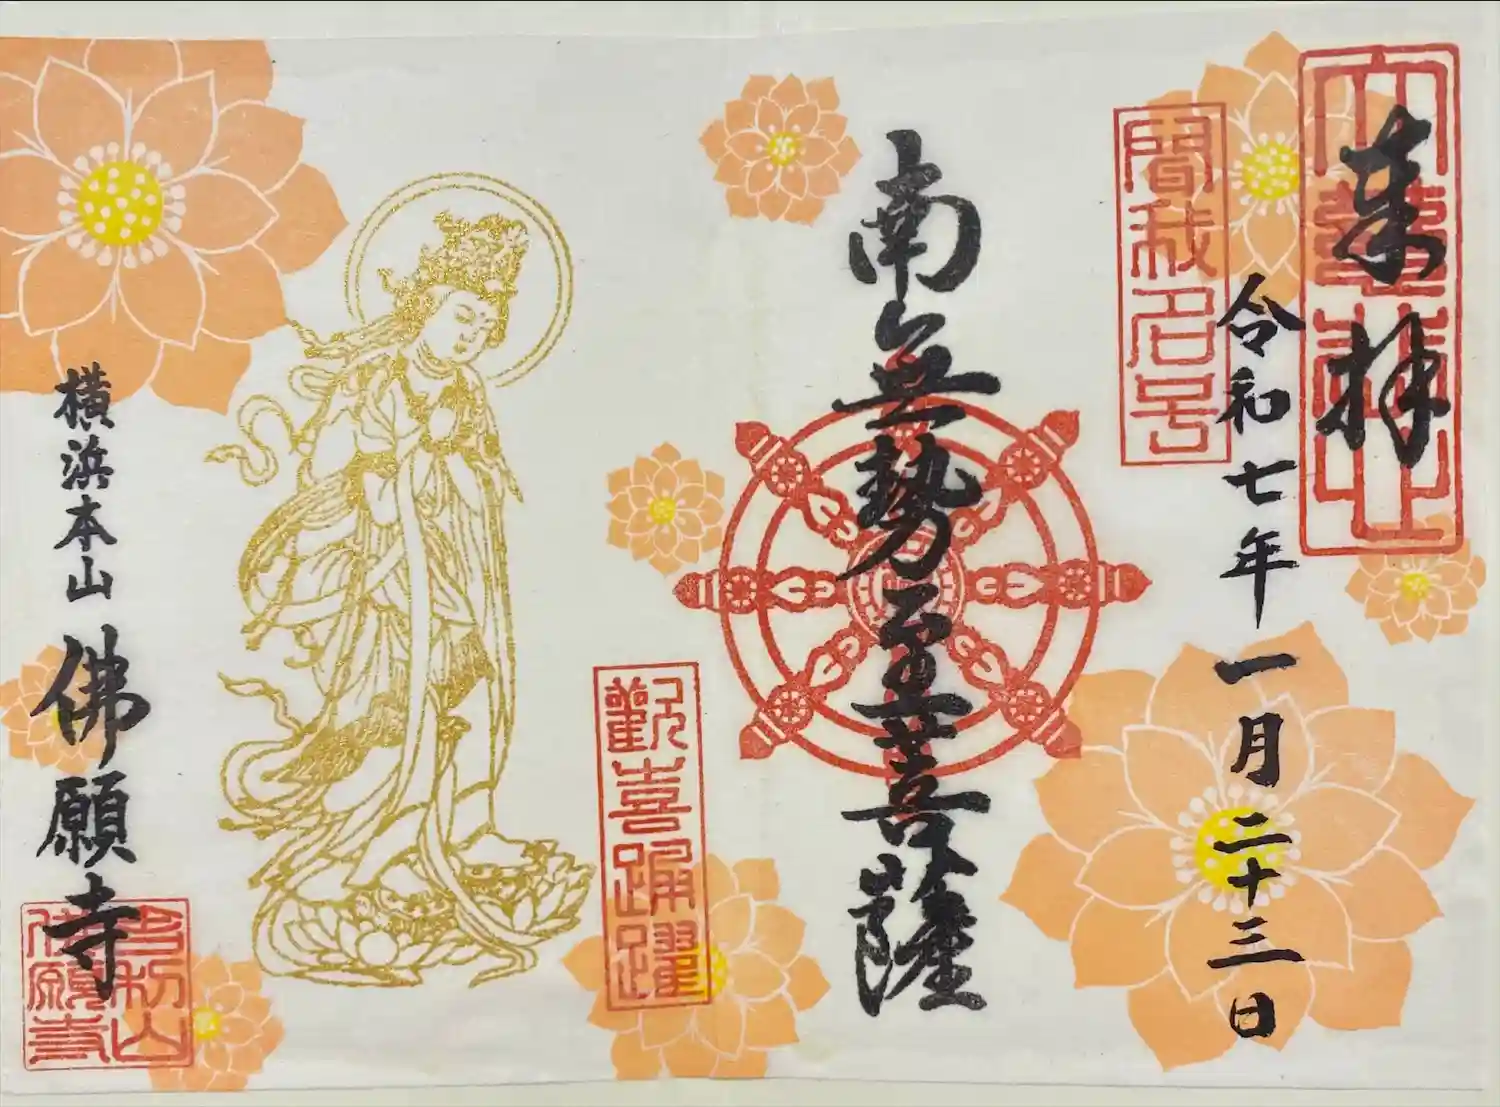 来拝
聞我名号
令和七年一月二十三日
南無勢至菩薩
歡喜踊躍
横浜本山 佛願寺